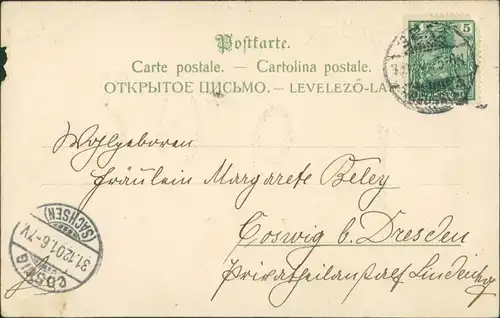 Postkarte.
Carte postale. — Cartolina postale.
ОТКРЫТОЕ ПИСЬМО. — LEVELEZŐ-LA
5
Wohlgeboren
Fräulein Margarete Beley
Coswig b. Dresden
COSWIG
(SACHSEN)
31.12.01.6-7V